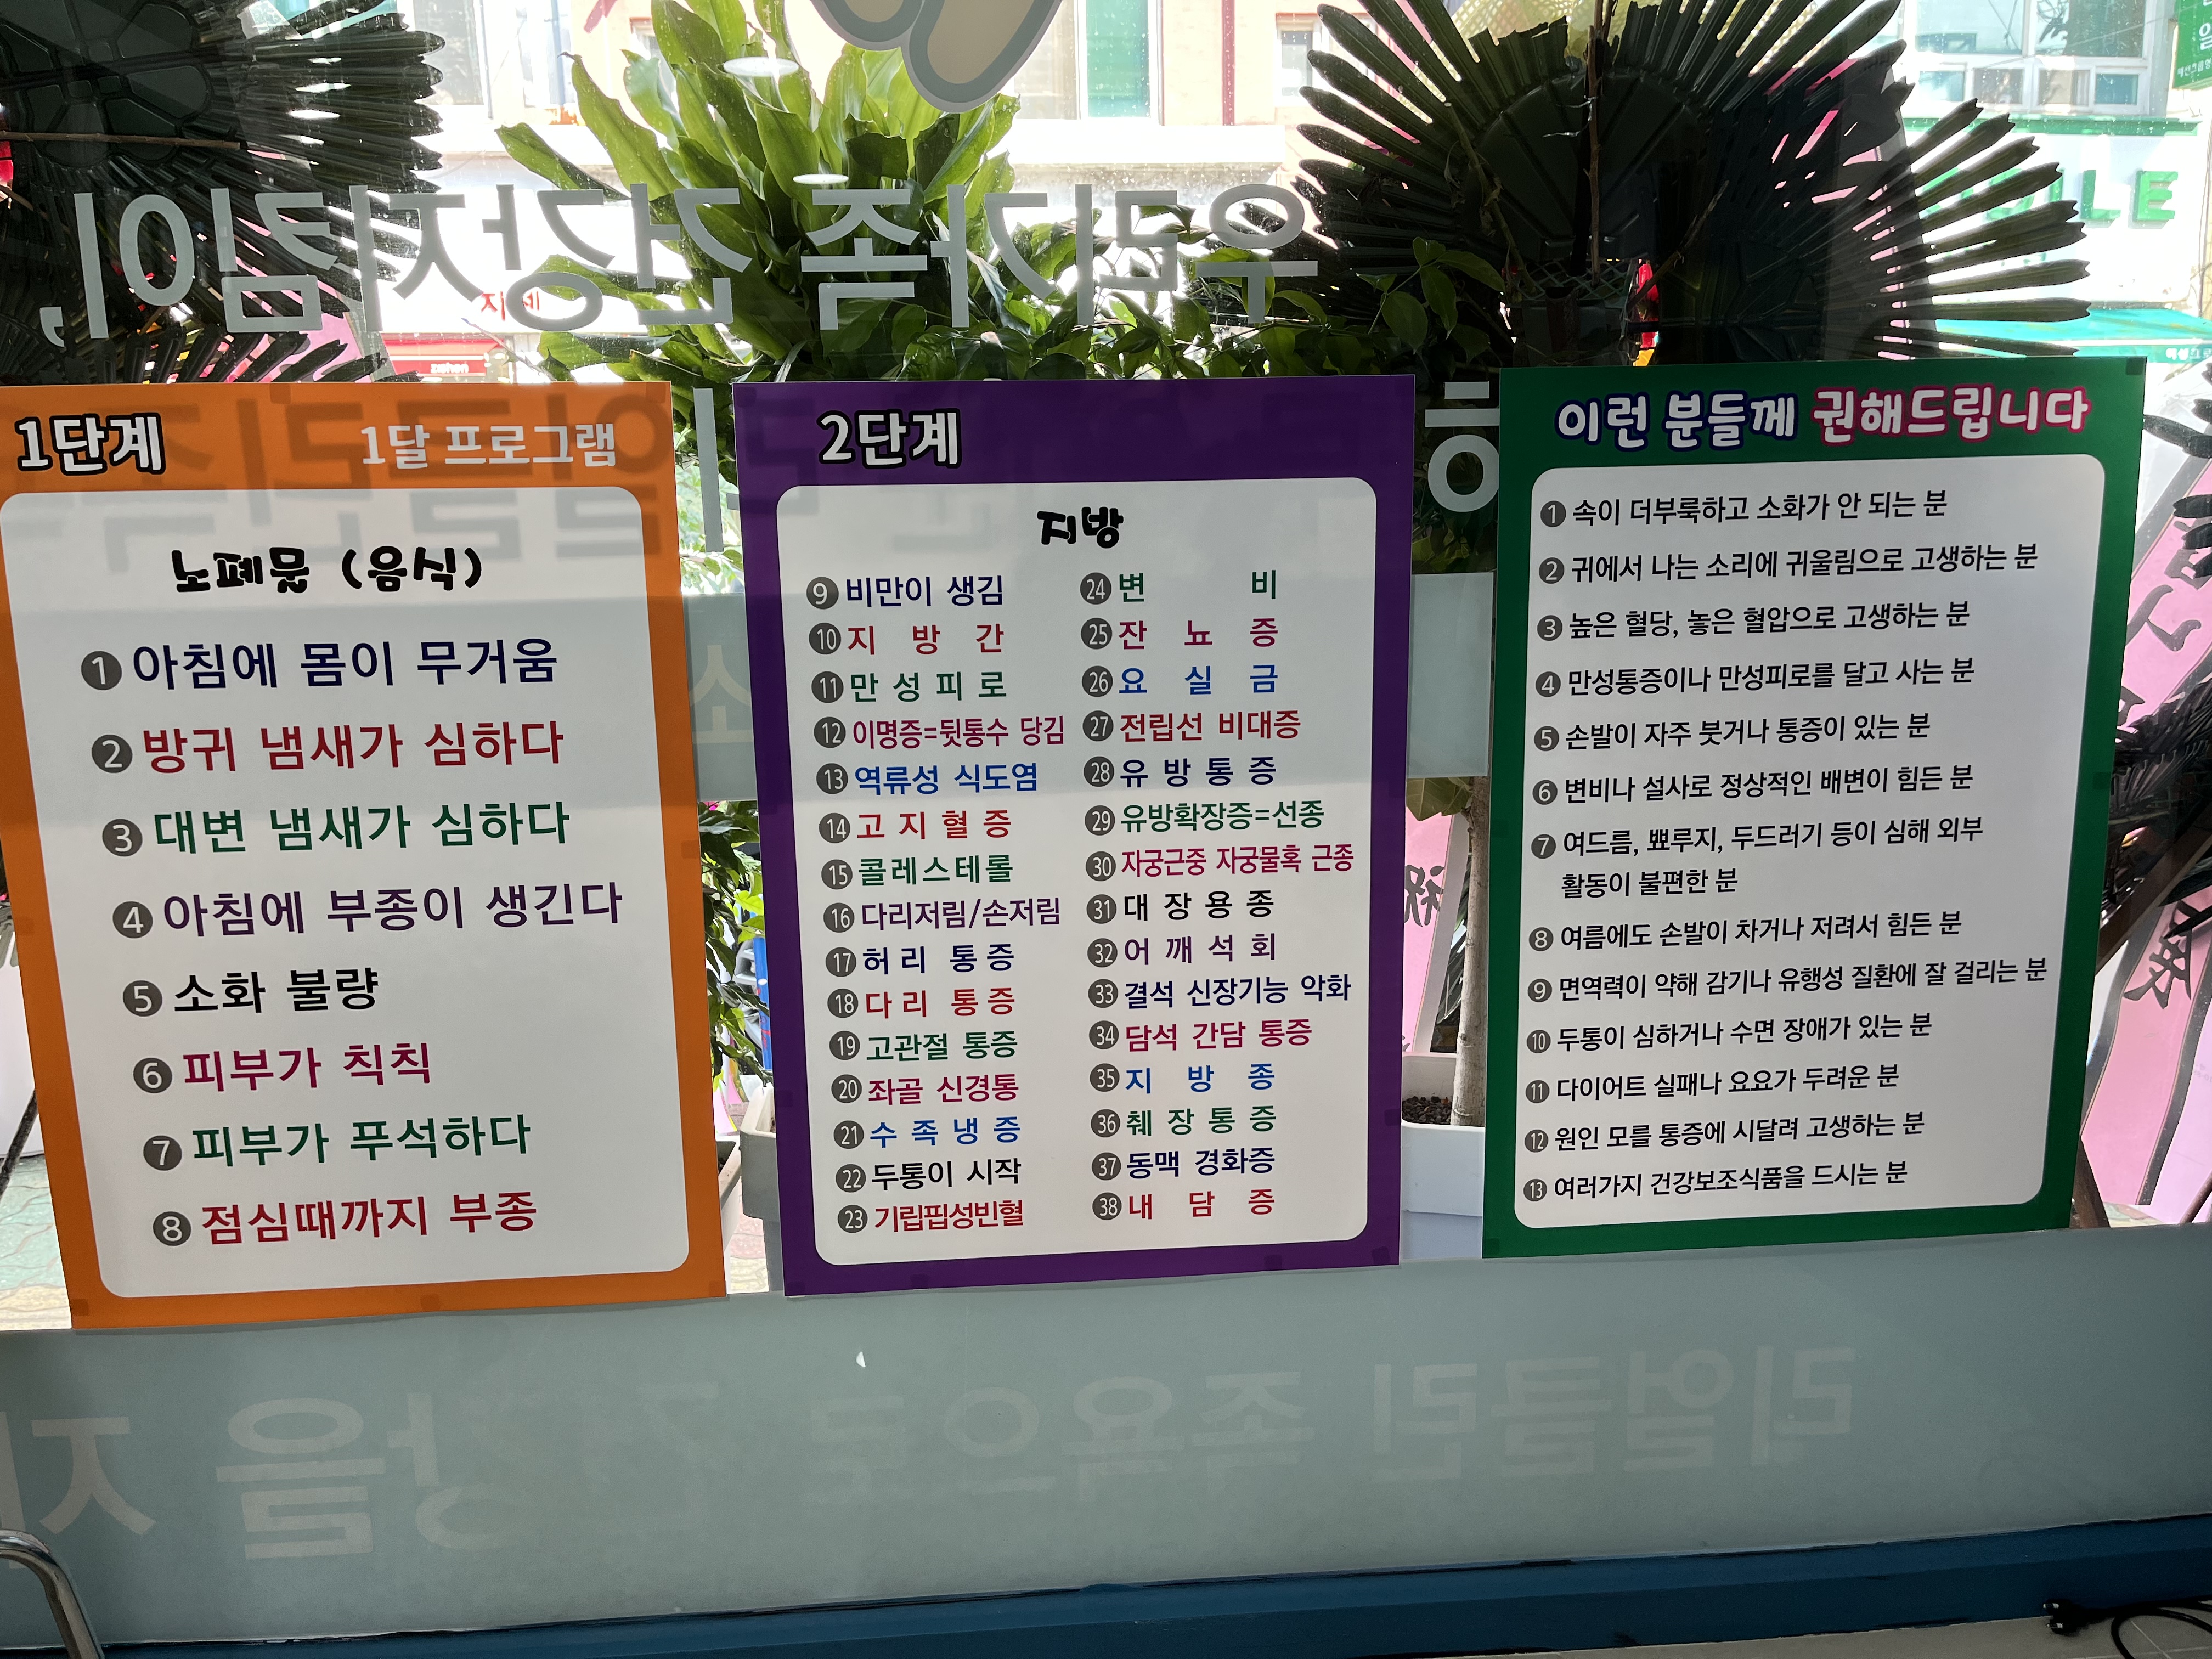 우리가족 건강지킴이,
1단계
1달 프로그램
노폐물 (음식)
❶ 아침에 몸이 무거움
❷ 방귀 냄새가 심하다
❸ 대변 냄새가 심하다
❹ 아침에 부종이 생긴다
❺ 소화 불량
❻ 피부가 칙칙
❼ 피부가 푸석하다
❽ 점심때까지 부종
2단계
지방
❾ 비만이 생김
❿ 지 방 간
⓫ 만 성 피 로
⓬ 이명증=뒷통수 당김
⓭ 역류성 식도염
⓮ 고 지 혈 증
⓯ 콜레스테롤
⓰ 다리저림/손저림
⓱ 허리 통증
⓲ 다리 통증
⓳ 고관절 통증
⓴ 좌골 신경통
㉑ 수 족 냉 증
㉒ 두통이 시작
㉓ 기립핍성빈혈
㉔ 변 비
㉕ 잔 뇨 증
㉖ 요 실 금
㉗ 전립선 비대증
㉘ 유 방 통 증
㉙ 유방확장증=선종
㉚ 자궁근중 자궁물혹 근종
㉛ 대 장 용 종
㉜ 어 깨 석 회
㉝ 결석 신장기능 악화
㉞ 담석 간담 통증
㉟ 지 방 종
㊱ 췌 장 통 증
㊲ 동맥 경화증
㊳ 내 담 증
이런 분들께 권해드립니다
❶ 속이 더부룩하고 소화가 안 되는 분
❷ 귀에서 나는 소리에 귀울림으로 고생하는 분
❸ 높은 혈당, 놓은 혈압으로 고생하는 분
❹ 만성통증이나 만성피로를 달고 사는 분
❺ 손발이 자주 붓거나 통증이 있는 분
❻ 변비나 설사로 정상적인 배변이 힘든 분
❼ 여드름, 뾰루지, 두드러기 등이 심해 외부
활동이 불편한 분
❽ 여름에도 손발이 차거나 저려서 힘든 분
❾ 면역력이 약해 감기나 유행성 질환에 잘 걸리는 분
❿ 두통이 심하거나 수면 장애가 있는 분
⓫ 다이어트 실패나 요요가 두려운 분
⓬ 원인 모를 통증에 시달려 고생하는 분
⓭ 여러가지 건강보조식품을 드시는 분
리얼클린 족욕으로 건강을